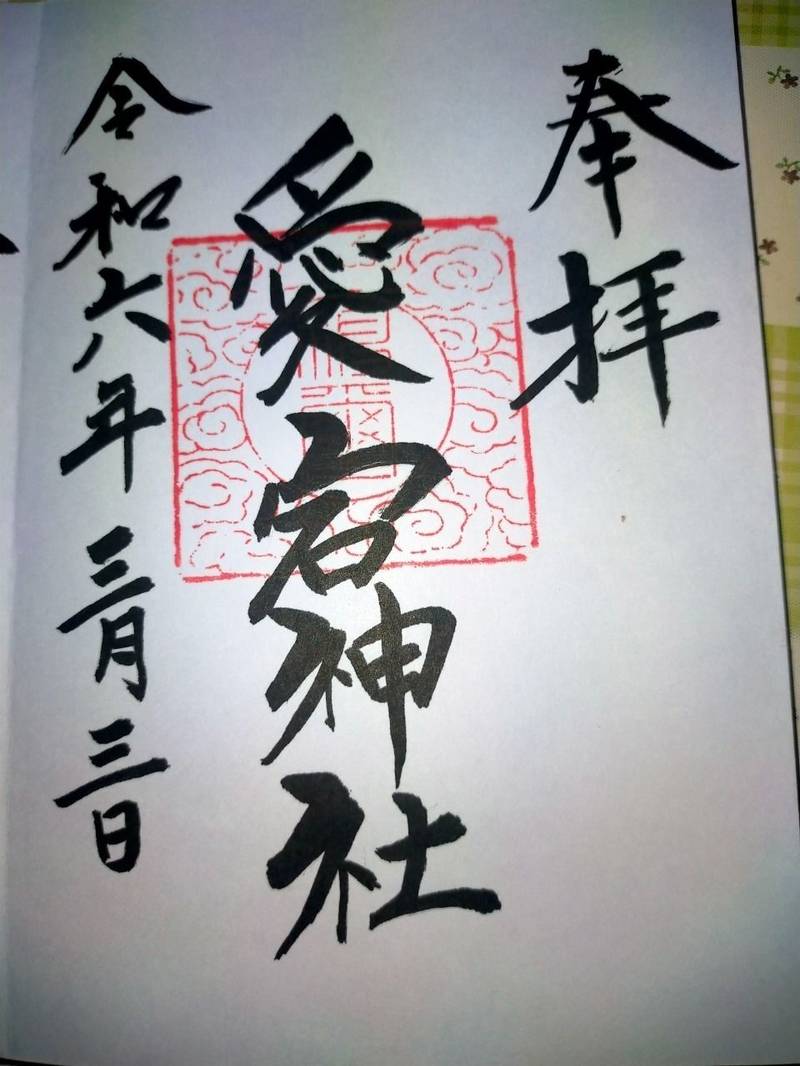 奉拝
愛宕神社
令和六年三月三日